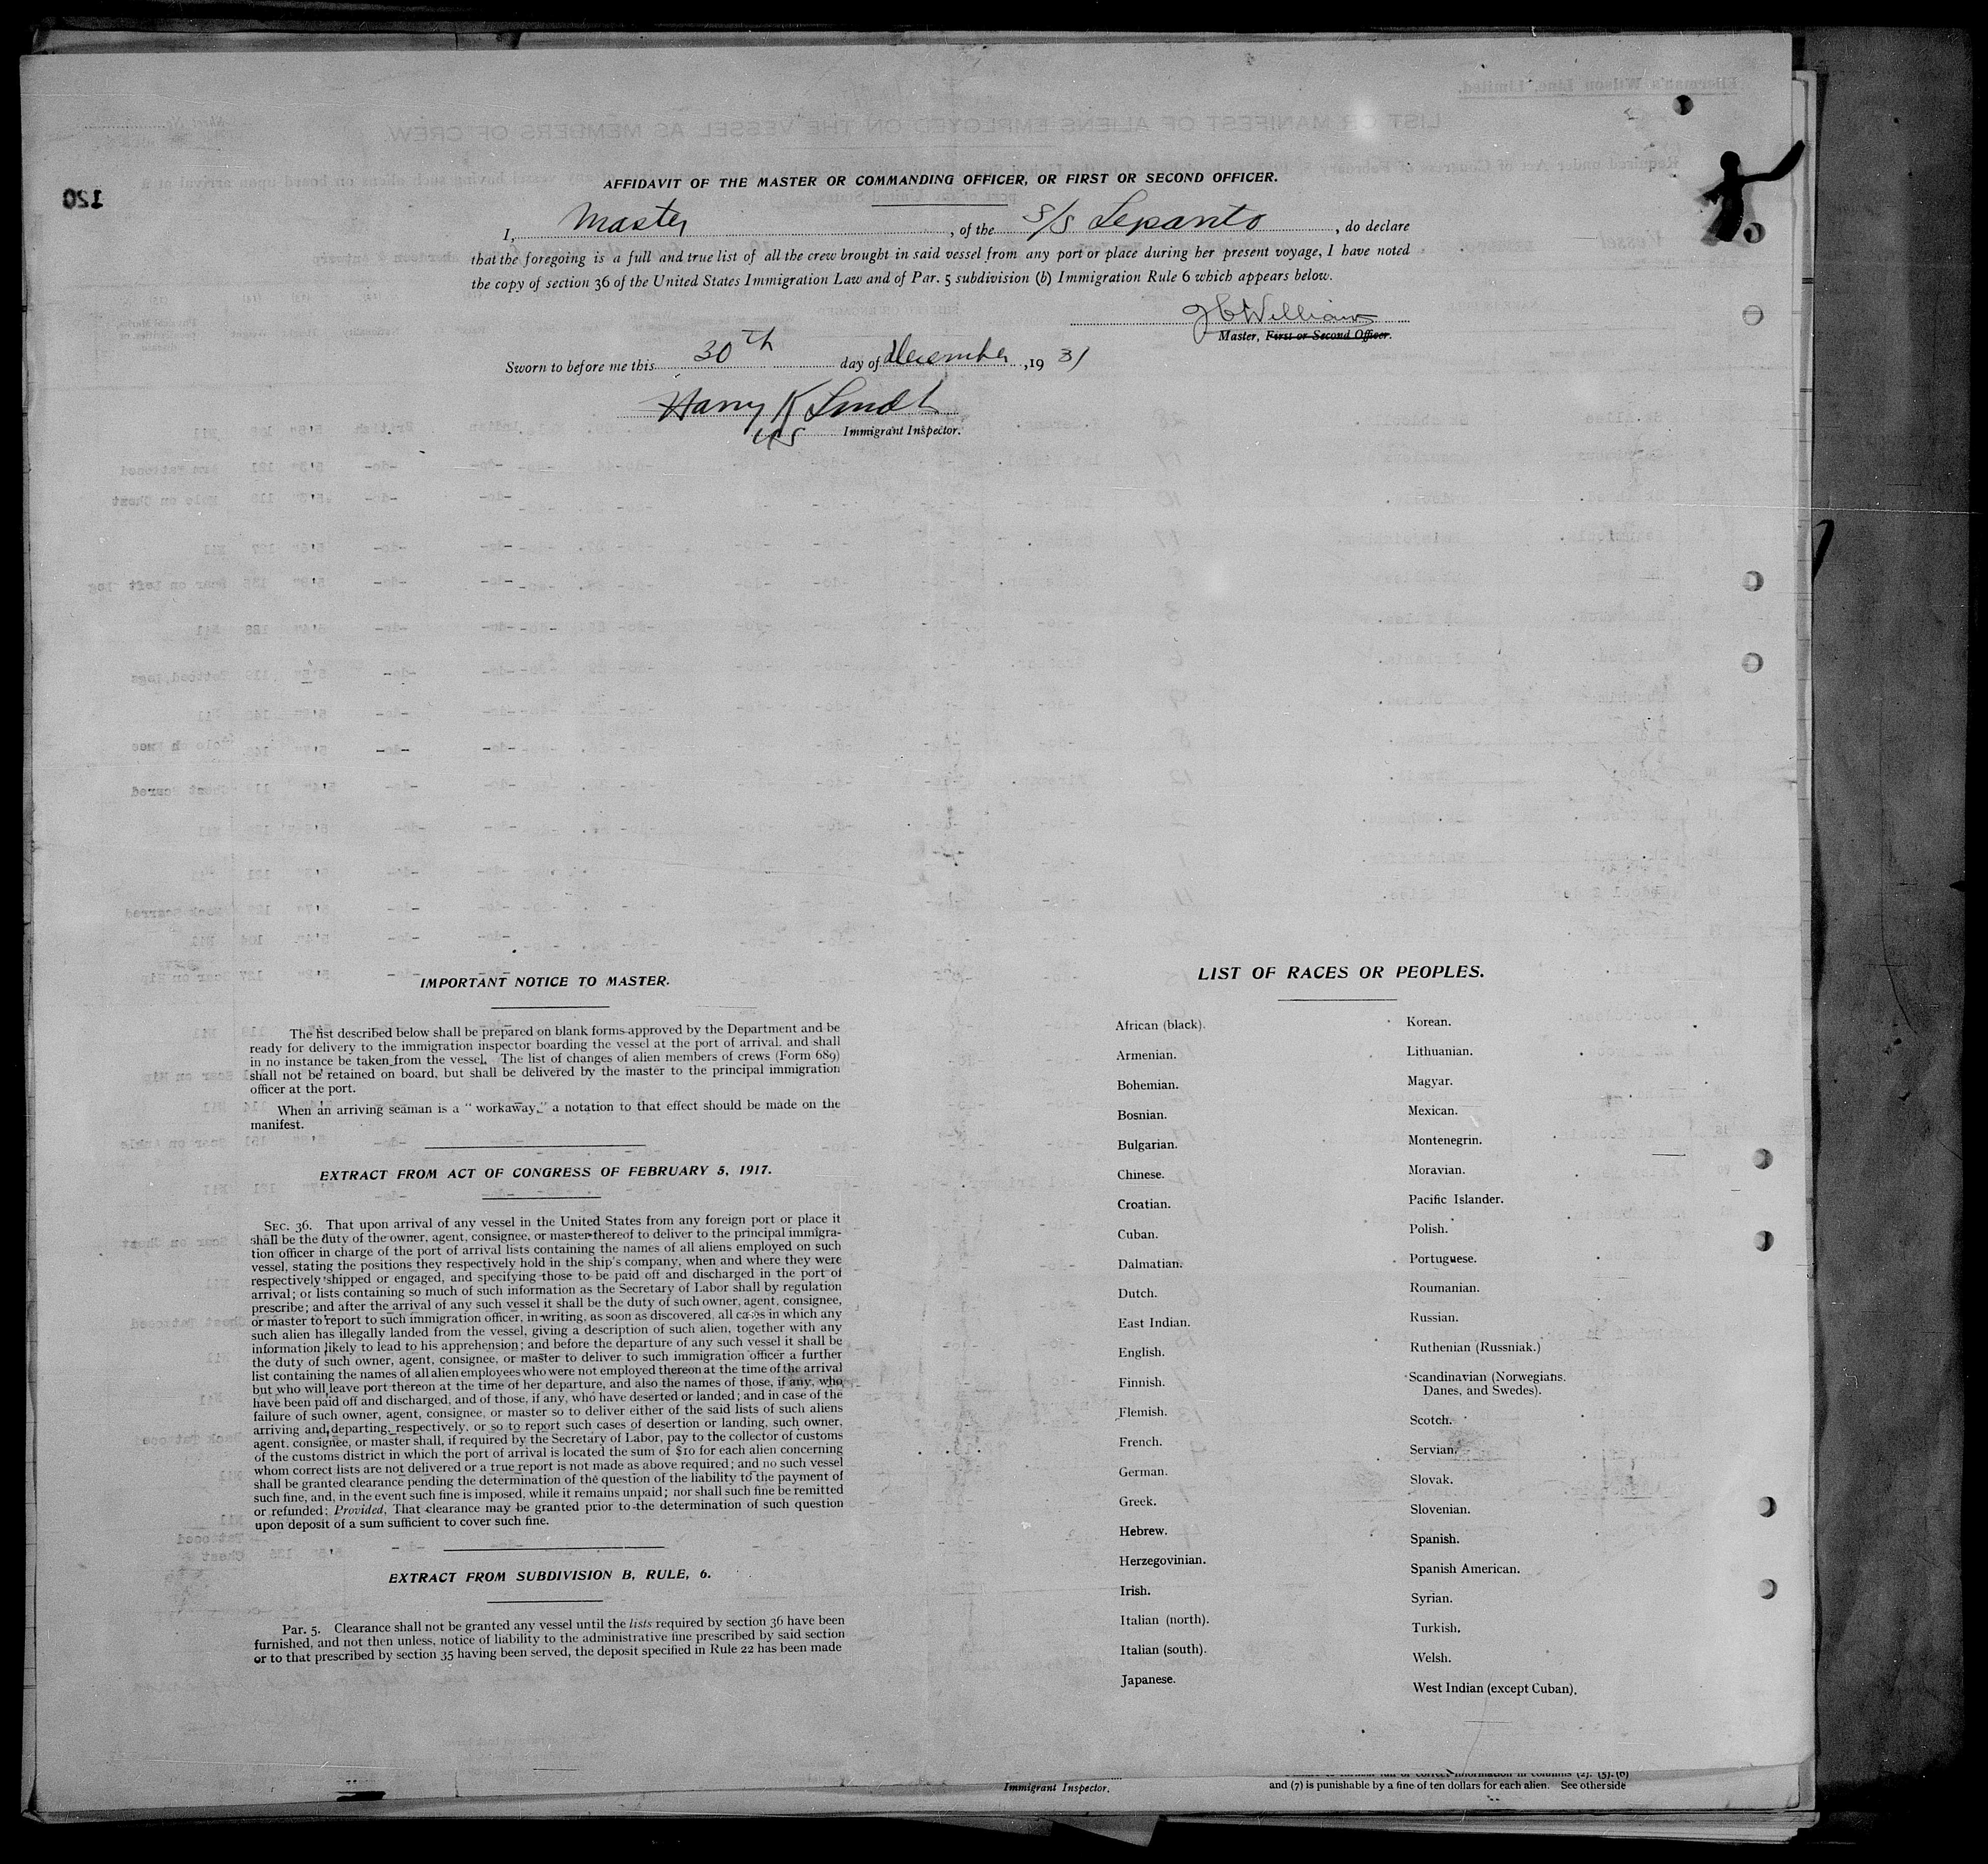 AFFIDAVIT OF THE MASTER OR COMMANDING OFFICER, OR FIRST OR SECOND OFFICER.
120
I, Master, of the S/S Lepanto, do declare
that the foregoing is a full and true list of all the crew brought in said vessel from any port or place during her present voyage, I have noted
the copy of section 36 of the United States Immigration Law and of Par. 5 subdivision (b) Immigration Rule 6 which appears below.
J C Williams
Master, First or Second Officer.
Sworn to before me this 30th day of December, 1931
Harry K
Immigrant Inspector.
IMPORTANT NOTICE TO MASTER.
The list described below shall be prepared on blank forms approved by the Department and be
ready for delivery to the immigration inspector boarding the vessel at the port of arrival, and shall
in no instance be taken from the vessel. The list of changes of alien members of crews (Form 689)
shall not be retained on board, but shall be delivered by the master to the principal immigration
officer at the port.
When an arriving seaman is a "workaway," a notation to that effect should be made on the
manifest.
EXTRACT FROM ACT OF CONGRESS OF FEBRUARY 5, 1917.
SEC. 36. That upon arrival of any vessel in the United States from any foreign port or place it
shall be the duty of the owner, agent, consignee, or master thereof to deliver to the principal immigra-
tion officer in charge of the port of arrival lists containing the names of all aliens employed on such
vessel, stating the positions they respectively hold in the ship's company, when and where they were
respectively shipped or engaged, and specifying those to be paid off and discharged in the port of
arrival; or lists containing so much of such information as the Secretary of Labor shall by regulation
prescribe; and after the arrival of any such vessel it shall be the duty of such owner, agent, consignee,
or master to report to such immigration officer, in writing, as soon as discovered, all cases in which any
such alien has illegally landed from the vessel, giving a description of such alien, together with any
information likely to lead to his apprehension; and before the departure of any such vessel it shall be
the duty of such owner, agent, consignee, or master to deliver to such immigration officer a further
list containing the names of all alien employees who were not employed thereon at the time of the arrival
but who will leave port thereon at the time of her departure, and also the names of those, if any, who
have been paid off and discharged, and of those, if any, who have deserted or landed; and in case of the
failure of such owner, agent, consignee, or master so to deliver either of the said lists of such aliens
arriving and departing, respectively, or so to report such cases of desertion or landing, such owner,
agent, consignee, or master shall, if required by the Secretary of Labor, pay to the collector of customs
of the customs district in which the port of arrival is located the sum of $10 for each alien concerning
whom correct lists are not delivered or a true report is not made as above required; and no such vessel
shall be granted clearance pending the determination of the question of the liability to the payment of
such fine, and, in the event such fine is imposed, while it remains unpaid; nor shall such fine be remitted
or refunded: Provided, That clearance may be granted prior to the determination of such question
upon deposit of a sum sufficient to cover such fine.
EXTRACT FROM SUBDIVISION B, RULE, 6.
Par. 5. Clearance shall not be granted any vessel until the lists required by section 36 have been
furnished, and not then unless, notice of liability to the administrative fine prescribed by said section
or to that prescribed by section 35 having been served, the deposit specified in Rule 22 has been made
LIST OF RACES OR PEOPLES.
African (black).
Armenian.
Bohemian.
Bosnian.
Bulgarian.
Chinese.
Croatian.
Cuban.
Dalmatian.
Dutch.
East Indian.
English.
Finnish.
Flemish.
French.
German.
Greek.
Hebrew.
Herzegovinian.
Irish.
Italian (north).
Italian (south).
Japanese.
Korean.
Lithuanian.
Magyar.
Mexican.
Montenegrin.
Moravian.
Pacific Islander.
Polish.
Portuguese.
Roumanian.
Russian.
Ruthenian (Russniak.)
Scandinavian (Norwegians.
Danes, and Swedes).
Scotch.
Servian.
Slovak.
Slovenian.
Spanish.
Spanish American.
Syrian.
Turkish.
Welsh.
West Indian (except Cuban).
Immigrant Inspector.
and (7) is punishable by a fine of ten dollars for each alien. See other side